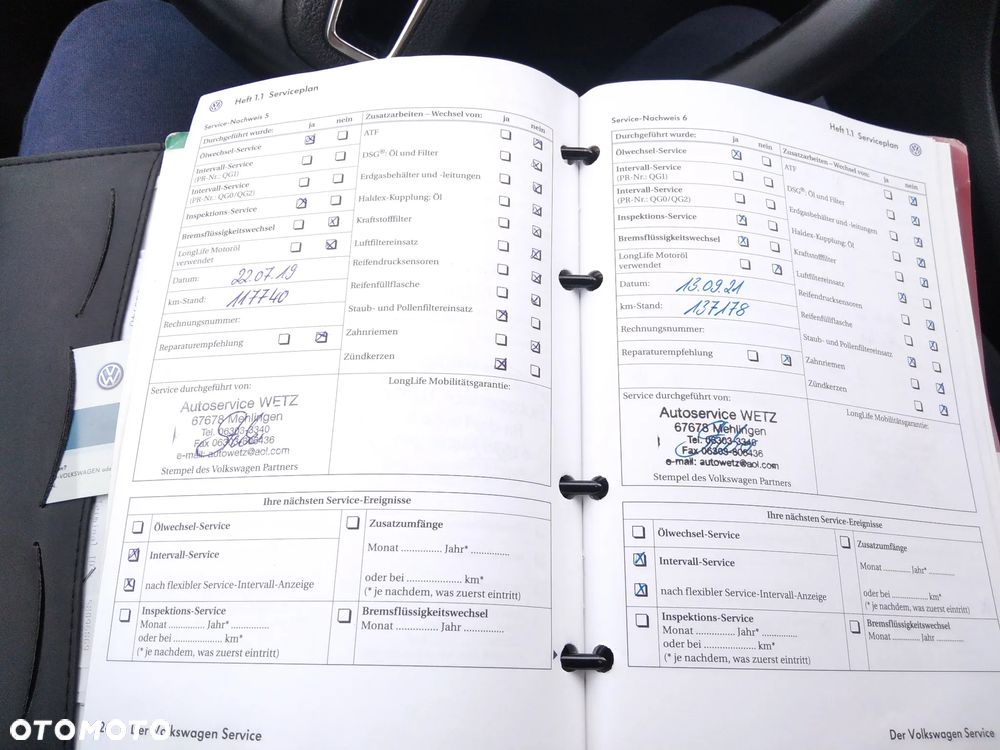 Heft 1.1 Serviceplan
Service-Nachweis 5
Durchgeführt wurde: ja nein
Ölwechsel-Service
Intervall-Service
(PR-Nr.: QG1)
Intervall-Service
(PR-Nr.: QG0/QG2)
Inspektions-Service
Bremsflüssigkeitswechsel
LongLife Motoröl
verwendet
Datum: 22.07.19
km-Stand: 117740
Rechnungsnummer:
Reparaturempfehlung
Zusatzarbeiten – Wechsel von: ja nein
ATF
DSG®: Öl und Filter
Erdgasbehälter und -leitungen
Haldex-Kupplung: Öl
Kraftstofffilter
Luftfiltereinsatz
Reifendrucksensoren
Reifenfüllflasche
Staub- und Pollenfiltereinsatz
Zahnriemen
Zündkerzen
Service durchgeführt von:
Autoservice WETZ
67678 Mehlingen
Tel. 06303-3340
Fax 06303-806436
e-mail: autowetz@aol.com
Stempel des Volkswagen Partners
LongLife Mobilitätsgarantie:
Ihre nächsten Service-Ereignisse
Ölwechsel-Service
Intervall-Service
nach flexibler Service-Intervall-Anzeige
Inspektions-Service
Monat ............. Jahr* .............
oder bei .................. km*
(* je nachdem, was zuerst eintritt)
Zusatzumfänge
Monat .............. Jahr* .............
oder bei .................... km*
(* je nachdem, was zuerst eintritt)
Bremsflüssigkeitswechsel
Monat .............. Jahr .............
Der Volkswagen Service
Service-Nachweis 6
Heft 1.1 Serviceplan
Durchgeführt wurde: ja nein
Ölwechsel-Service
Intervall-Service
(PR-Nr.: QG1)
Intervall-Service
(PR-Nr.: QG0/QG2)
Inspektions-Service
Bremsflüssigkeitswechsel
LongLife Motoröl
verwendet
Datum: 13.09.21
km-Stand: 137178
Rechnungsnummer:
Reparaturempfehlung
Zusatzarbeiten – Wechsel von: ja nein
ATF
DSG®: Öl und Filter
Erdgasbehälter und -leitungen
Haldex-Kupplung: Öl
Kraftstofffilter
Luftfiltereinsatz
Reifendrucksensoren
Reifenfüllflasche
Staub- und Pollenfiltereinsatz
Zahnriemen
Zündkerzen
Service durchgeführt von:
Autoservice WETZ
67678 Mehlingen
Tel. 06303-3340
Fax 06303-806436
e-mail: autowetz@aol.com
Stempel des Volkswagen Partners
LongLife Mobilitätsgarantie:
Ihre nächsten Service-Ereignisse
Ölwechsel-Service
Intervall-Service
nach flexibler Service-Intervall-Anzeige
Inspektions-Service
Monat ............. Jahr* .............
oder bei .................. km*
(* je nachdem, was zuerst eintritt)
Zusatzumfänge
Monat ............ Jahr* ............
oder bei .................. km*
(* je nachdem, was zuerst eintritt)
Bremsflüssigkeitswechsel
Monat ............ Jahr ............
Der Volkswagen Service
OTOMOTO